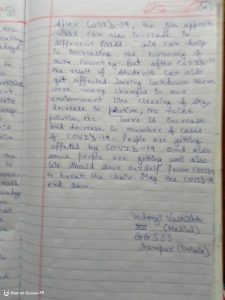 After COVID-19, the job opportu
nities can also increase in
different fields. will can help
in increasing the economy of
our country. But after COVID-19
the result of students can also
get affected. During lockdown there
were many changes in our
environment like clearing of sky,
decrease in pollution, no noise
pollution, etc. There is increase
and decrease in number of cases
of COVID-19. People are getting
affected by COVID-19 and also
some people are getting well also
We should save ourself from COVID19
to break the chain. May the COVID-19
end soon.
Vashisht
(Medical)
GGSSS
Shot on Gionee F9